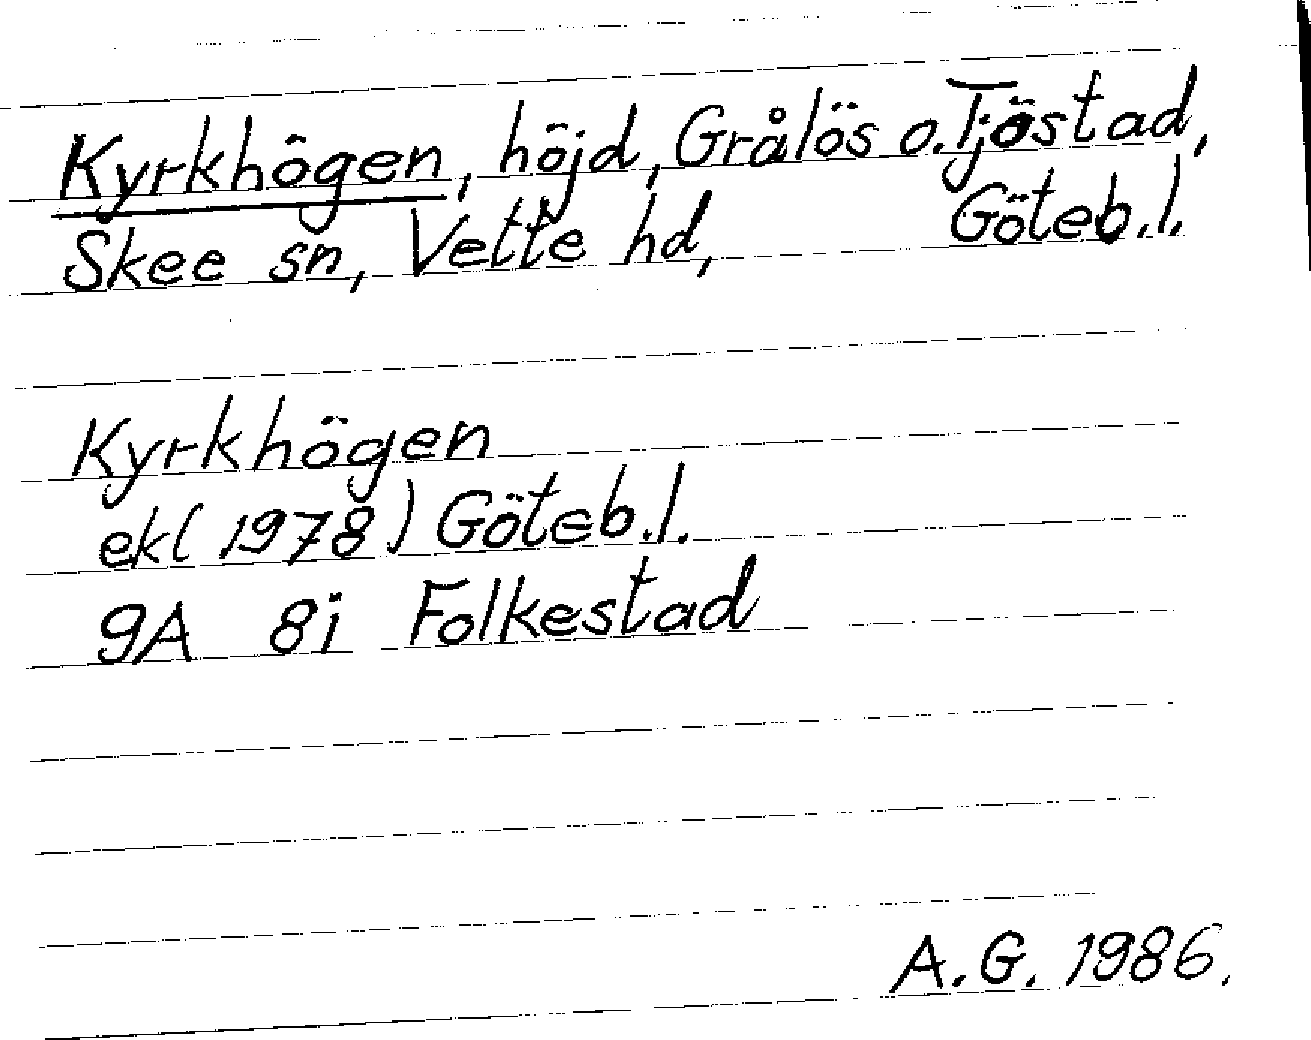 Kyrkhögen, höjd, Grålös o. Tjöstad,
Skee sn, Vette hd, Göteb. l.
Kyrkhögen
ekl (1978) Göteb. l.
9A 8i Folkestad
A. G. 1986.